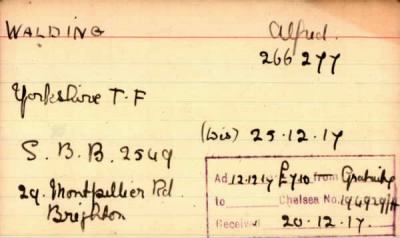 WALDING Alfred.
266277
Yorkshire T.F
(Dis) 25.12.17
S.B.B. 2549
29. Montpellier Rd.
Brighton
Ad 12.12.17 £7.10 from Gratuity
to Chelsea No.
Received 20.12.17.